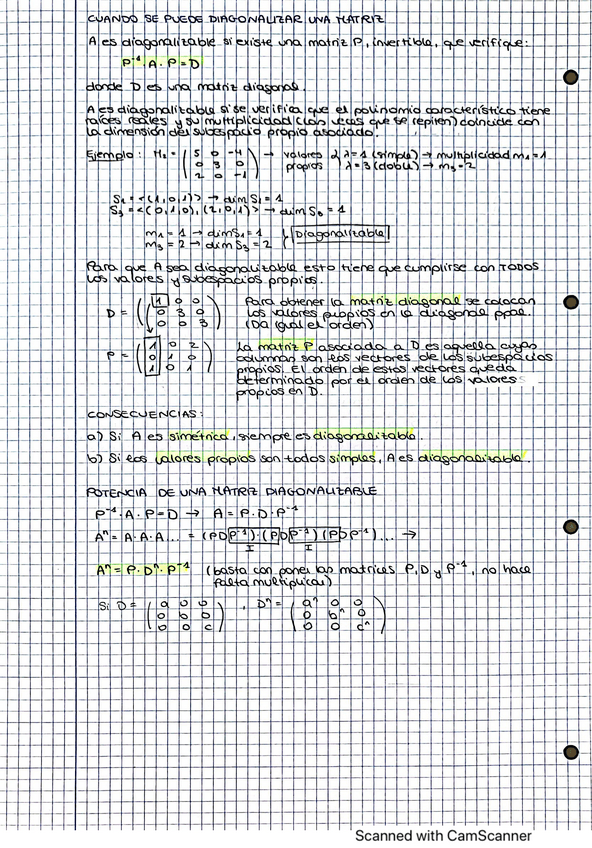 CUANDO SE PUEDE DIAGONALIZAR UNA MATRIZ
A es diagonalizable si existe una matriz P, invertible, que verifique:
P⁻¹·A·P = D
donde D es una matriz diagonal.
A es diagonalizable si se verifica que el polinomio característico tiene
raíces reales y su multiplicidad (las veces que se repiten) coincide con
la dimensión del subespacio propio asociado.
Ejemplo: M₂ = ( 5 0 -4 ) → valores { λ = 1 (simple) → multiplicidad m₁ = 1
( 0 3 0 ) propios λ = 3 (doble) → m₃ = 2
( 2 0 -1 )
S₁ = <(1,0,1)> → dim S₁ = 1
S₃ = <(0,1,0), (2,0,1)> → dim S₀ = 1
m₁ = 1 → dim S₁ = 1
m₃ = 2 → dim S₃ = 2 } Diagonalizable
Para que A sea diagonalizable esto tiene que cumplirse con TODOS
los valores y subespacios propios.
D = ( 1 0 0 ) Para obtener la matriz diagonal se colocan
( 0 3 0 ) los valores propios en la diagonal ppal.
( 0 0 3 ) (Da igual el orden)
P = ( 1 0 2 ) La matriz P asociada a D es aquella cuyas
( 0 1 0 ) columnas son los vectores de los subespacios
( 1 0 1 ) propios. El orden de estos vectores queda
determinado por el orden de los valores
propios en D.
CONSECUENCIAS:
a) Si A es simétrica, siempre es diagonalizable.
b) Si los valores propios son todos simples, A es diagonalizable.
POTENCIA DE UNA MATRIZ DIAGONALIZABLE
P⁻¹·A·P = D → A = P·D·P⁻¹
Aⁿ = A·A·A... = (PDP⁻¹)·(PDP⁻¹)(PDP⁻¹)... →
I I
Aⁿ = P·Dⁿ·P⁻¹ (basta con poner las matrices P, D y P⁻¹, no hace
falta multiplicar)
Si D = ( a 0 0 ) , Dⁿ = ( aⁿ 0 0 )
( 0 b 0 ) ( 0 bⁿ 0 )
( 0 0 c ) ( 0 0 cⁿ )
Scanned with CamScanner